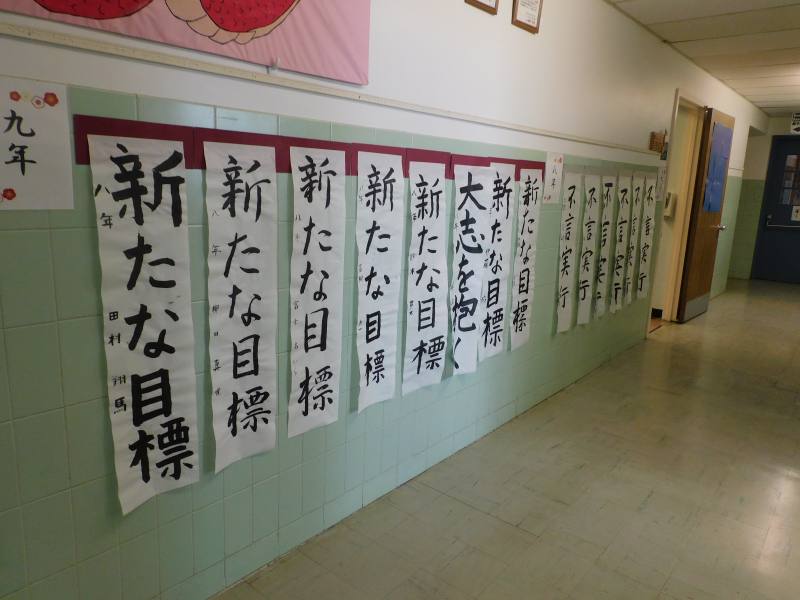 九年
新たな目標
八年
田村 翔馬
新たな目標
八年
新たな目標
新たな目標
新たな目標
大志を抱く
新たな目標
新たな目標
八年
不言実行
不言実行
不言実行
不言実行
不言実行
不言実行